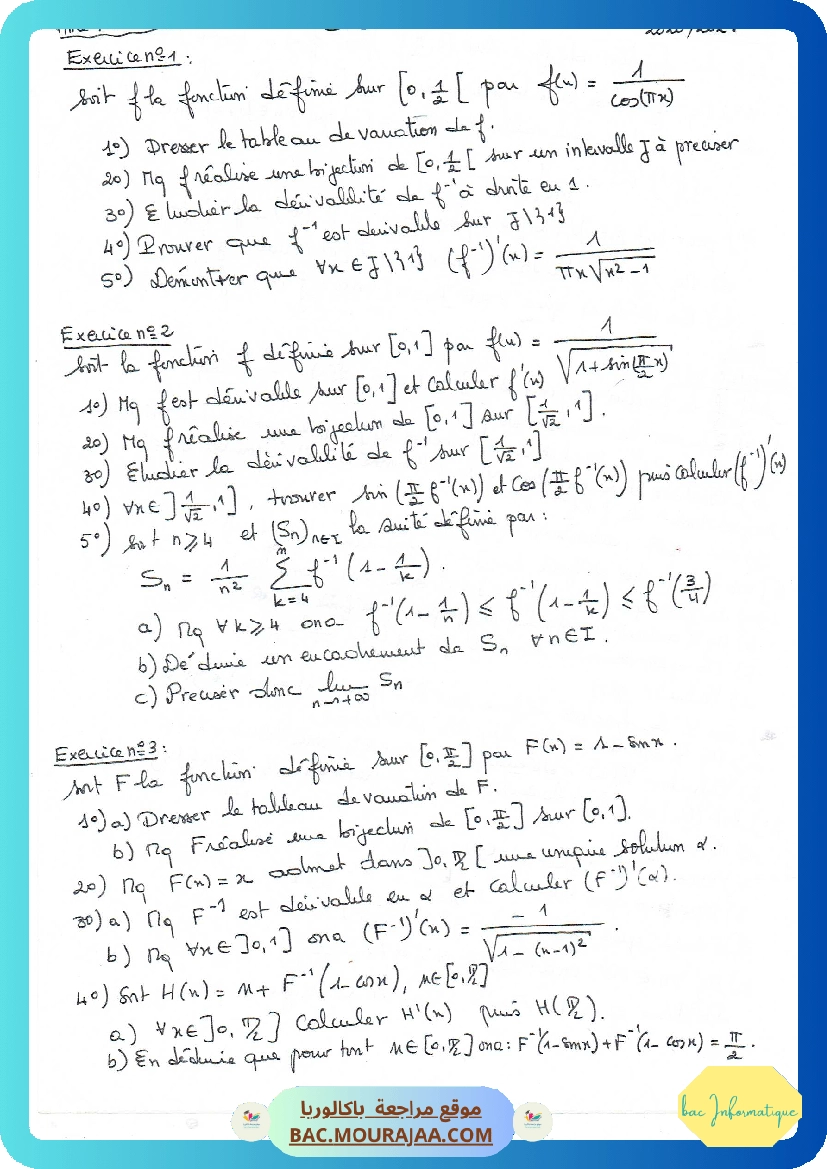 Exercice n°1 :
Soit f la fonction définie sur [0, 1/2 [ par f(x) = 1/cos(πx)
1°) Dresser le tableau de variation de f.
2°) Mq f réalise une bijection de [0, 1/2 [ sur un intervalle J à preciser
3°) Etudier la dérivabilité de f⁻¹ à droite en 1.
4°) Prouver que f⁻¹ est derivable sur J\{1}
5°) Démontrer que ∀x ∈ J\{1} (f⁻¹)'(x) = 1/(πx√(x²-1))
Exercice n°2
Soit la fonction f définie sur [0,1] par f(x) = 1/√(1+sin(π/2 x))
1°) Mq f est dérivable sur [0,1] et calculer f'(x)
2°) Mq f réalise une bijection de [0,1] sur [1/√2, 1].
3°) Etudier la dérivabilité de f⁻¹ sur [1/√2, 1]
4°) ∀x ∈ ]1/√2, 1], trouver sin (π/2 f⁻¹(x)) et cos (π/2 f⁻¹(x)) puis calculer (f⁻¹)'(x)
5°) Soit n ≥ 4 et (Sn)n∈I la suite définie par :
Sn = 1/n² Σ(k=4 → n) f⁻¹(1 - 1/k).
a) Mq ∀ k ≥ 4 on a f⁻¹(1 - 1/n) ≤ f⁻¹(1 - 1/k) ≤ f⁻¹(3/4)
b) Déduire un encadrement de Sn ∀n ∈ I.
c) Preciser donc lim n→+∞ Sn
Exercice n°3 :
Soit F la fonction définie sur [0, π/2] par F(x) = 1 - sin x.
1°) a) Dresser le tableau de variation de F.
b) Mq F réalise une bijection de [0, π/2] sur [0,1].
2°) Mq F(x) = x admet dans ]0, π/2[ une unique solution α.
3°) a) Mq F⁻¹ est dérivable en α et calculer (F⁻¹)'(α).
b) Mq ∀x ∈ ]0,1] on a (F⁻¹)'(x) = -1/√(1-(x-1)²).
4°) Soit H(x) = x + F⁻¹(1-cos x), x ∈ [0, π/2]
a) ∀x ∈ ]0, π/2] calculer H'(x) puis H(π/2).
b) En déduire que pour tout x ∈ [0, π/2] on a : F⁻¹(1-sin x) + F⁻¹(1-cos x) = π/2.
موقع مراجعة باكالوريا
BAC.MOURAJAA.COM
bac Informatique